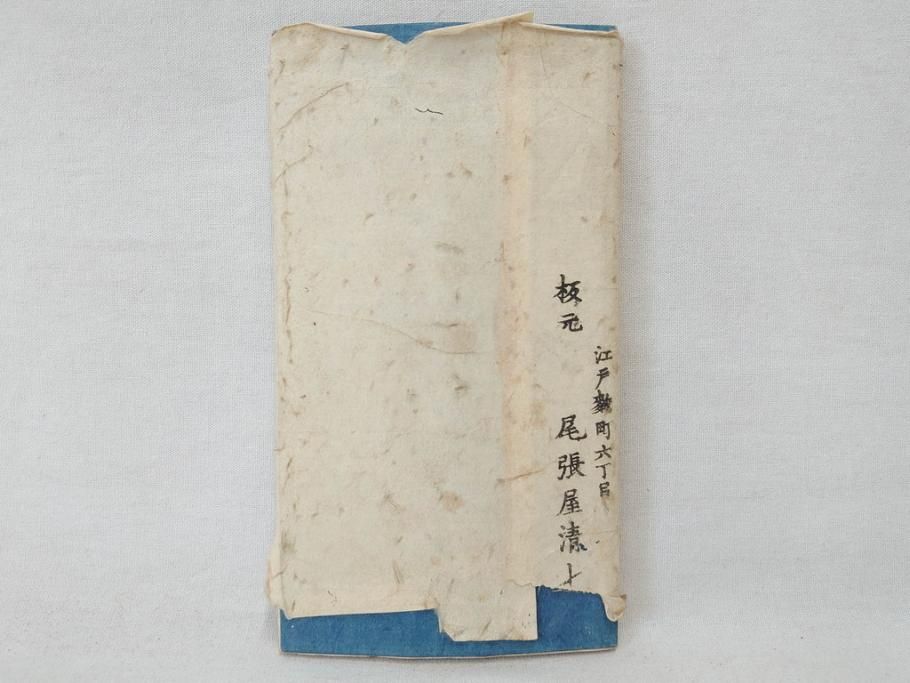 江戸麹町六丁目
板元 尾張屋清